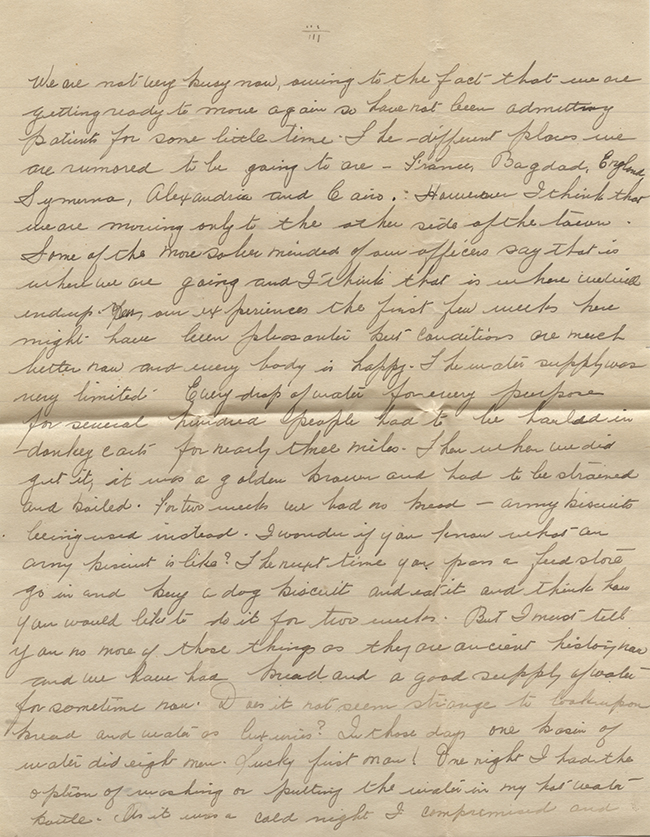 III
We are not very busy now, owing to the fact that we are
getting ready to move again so have not been admitting
patients for some little time. The different places we
are rumored to be going to are - France, Bagdad, England,
Symerna, Alexandria and Cairo. However I think that
we are moving only to the other side of the town.
Some of the more sober minded of our officers say that is
where we are going and I think that is where we will
end up. our experiences the first few weeks here
might have been pleasanter but conditions are much
better now and every body is happy. The water supply was
very limited. Every drop of water for every purpose
for several hundred people had to be hauled in
donkey carts for nearly three miles. Then when we did
get it, it was a golden brown and had to be strained
and boiled. For two weeks we had no bread - army biscuits
being used instead. I wonder if you know what an
army biscuit is like? The next time you pass a feed store
go in and buy a dog biscuit and eat it and think how
you would like to do it for two weeks. But I must tell
you no more of those things as they are ancient history now
and we have had bread and a good supply of water
for sometime now. Does it not seem strange to look upon
bread and water as luxuries? In those days one basin of
water did eight men. Lucky first man! One night I had the
option of washing or putting the water in my hot water
bottle. As it was a cold night I compromised and